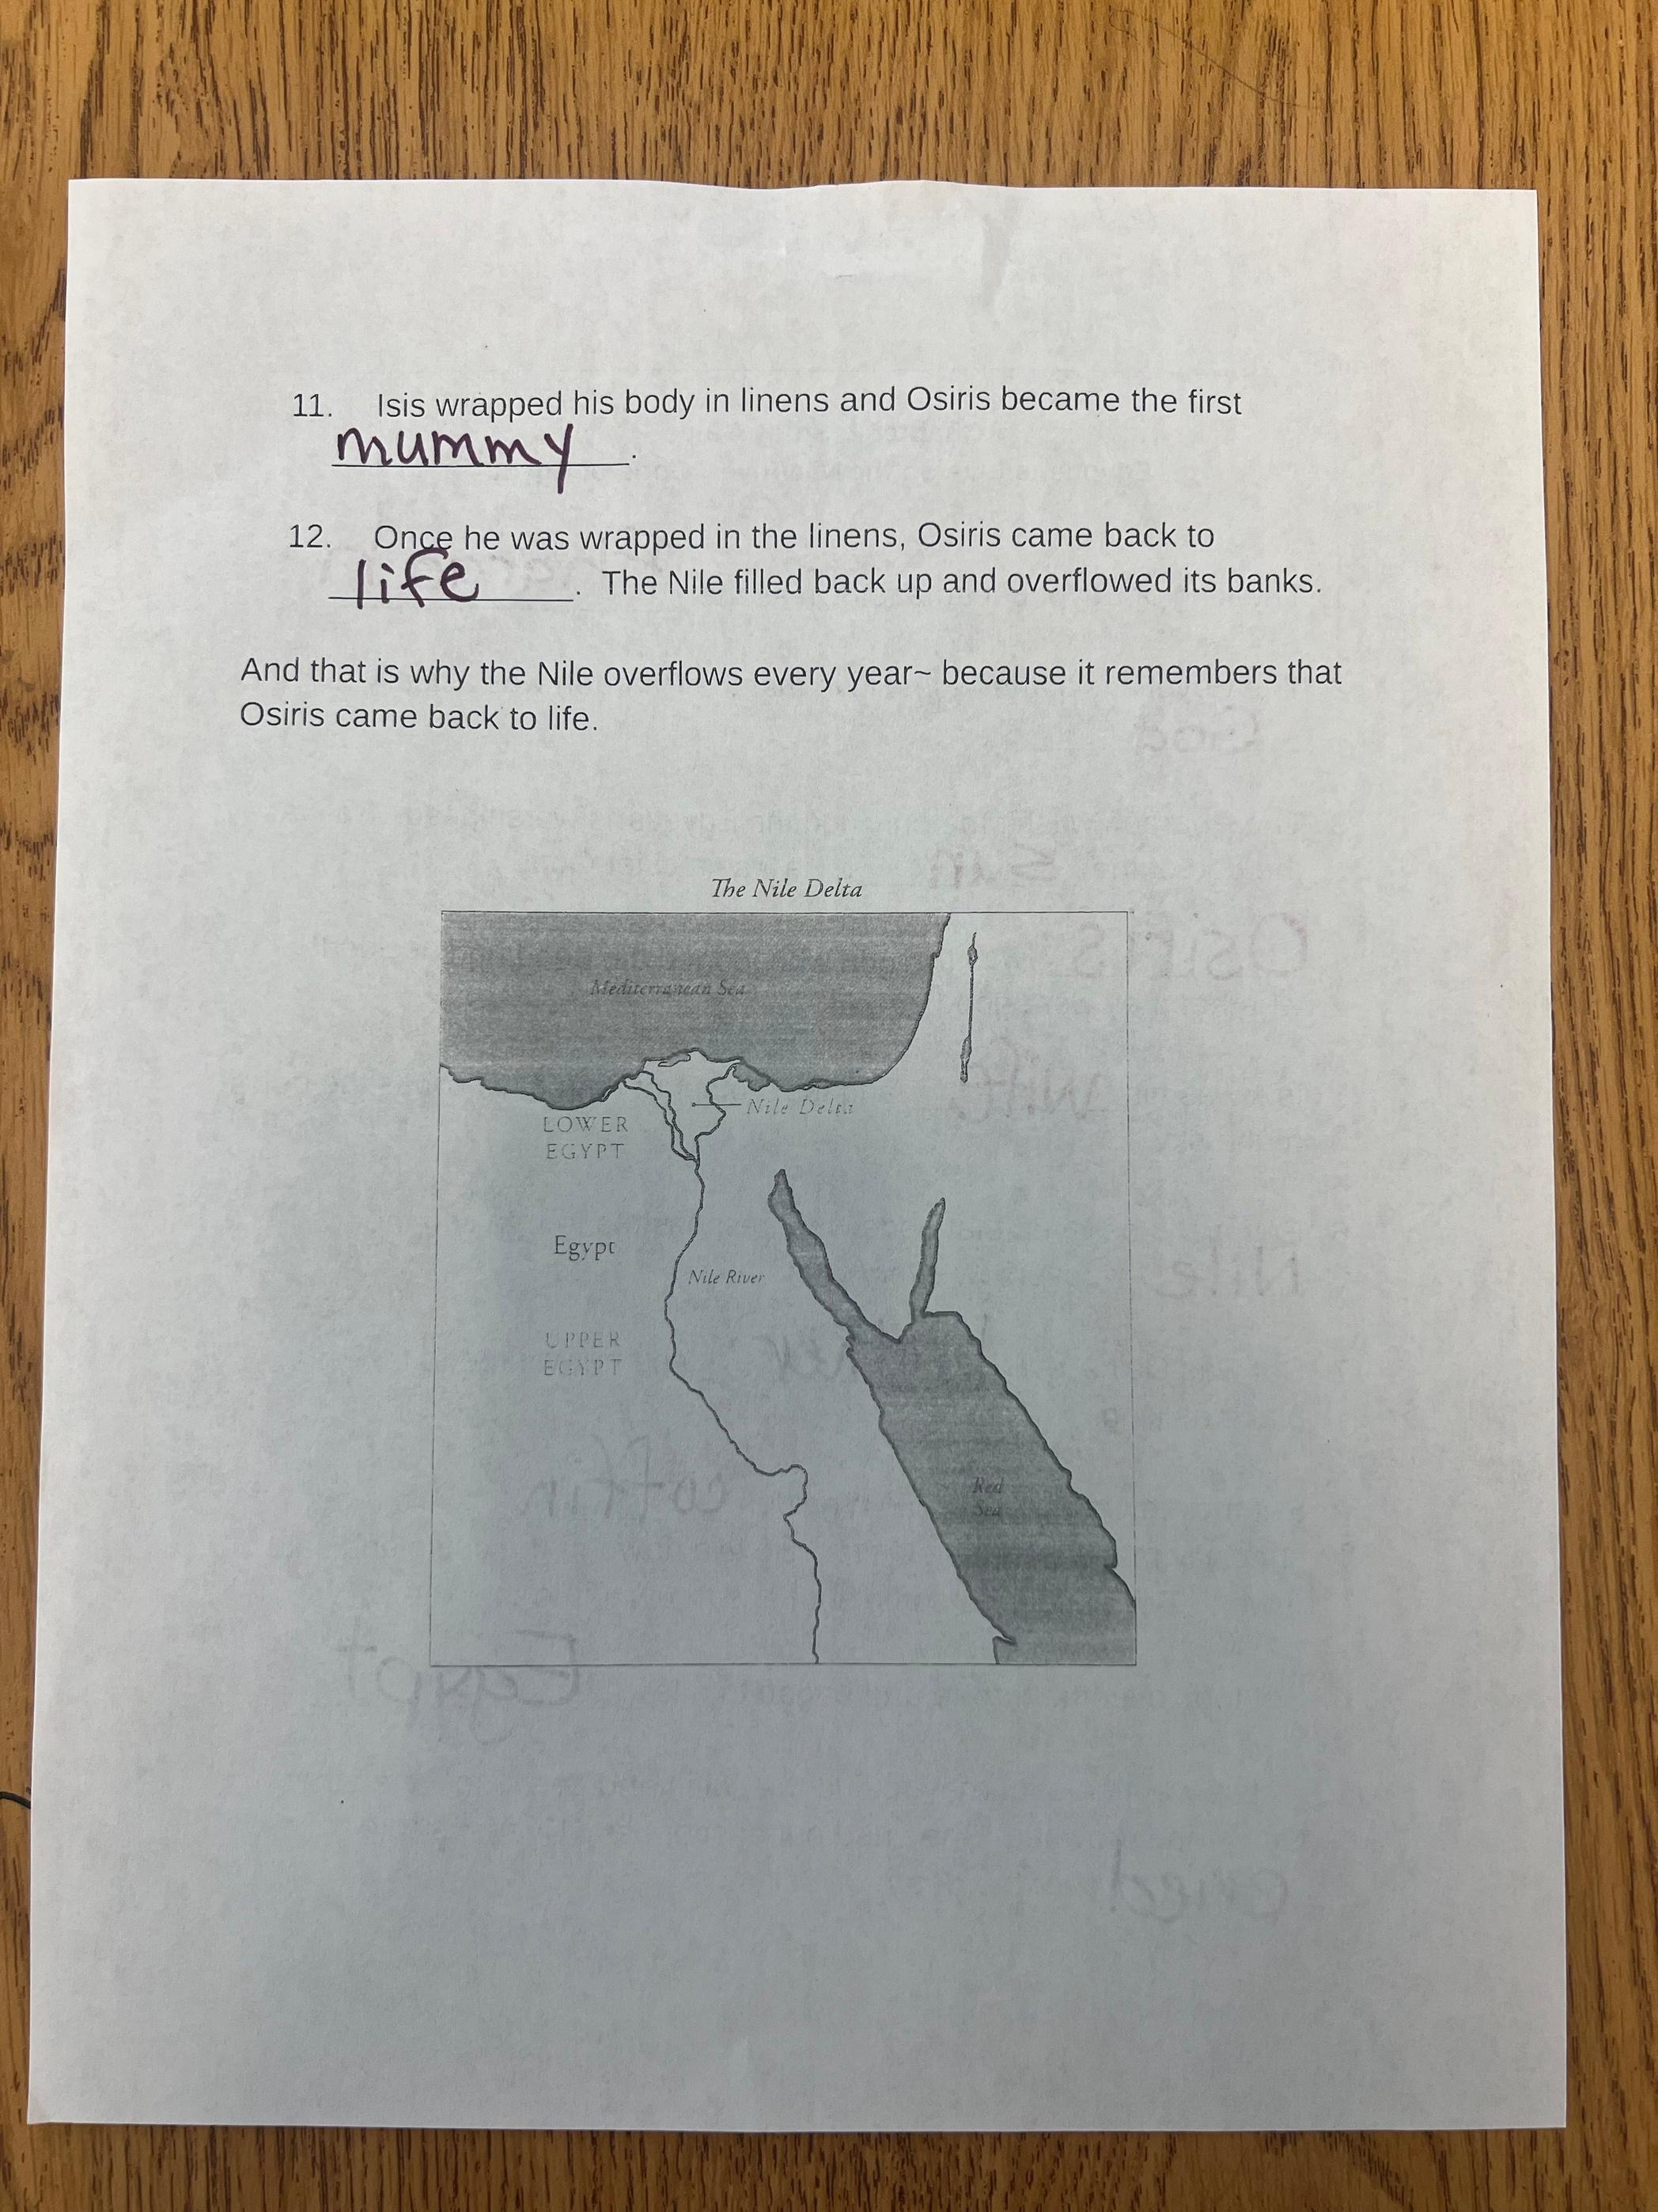 11. Isis wrapped his body in linens and Osiris became the first
mummy.
12. Once he was wrapped in the linens, Osiris came back to
life. The Nile filled back up and overflowed its banks.
And that is why the Nile overflows every year~ because it remembers that
Osiris came back to life.
The Nile Delta
Mediterranean Sea
Nile Delta
LOWER
EGYPT
Egypt
Nile River
UPPER
EGYPT
Red
Sea